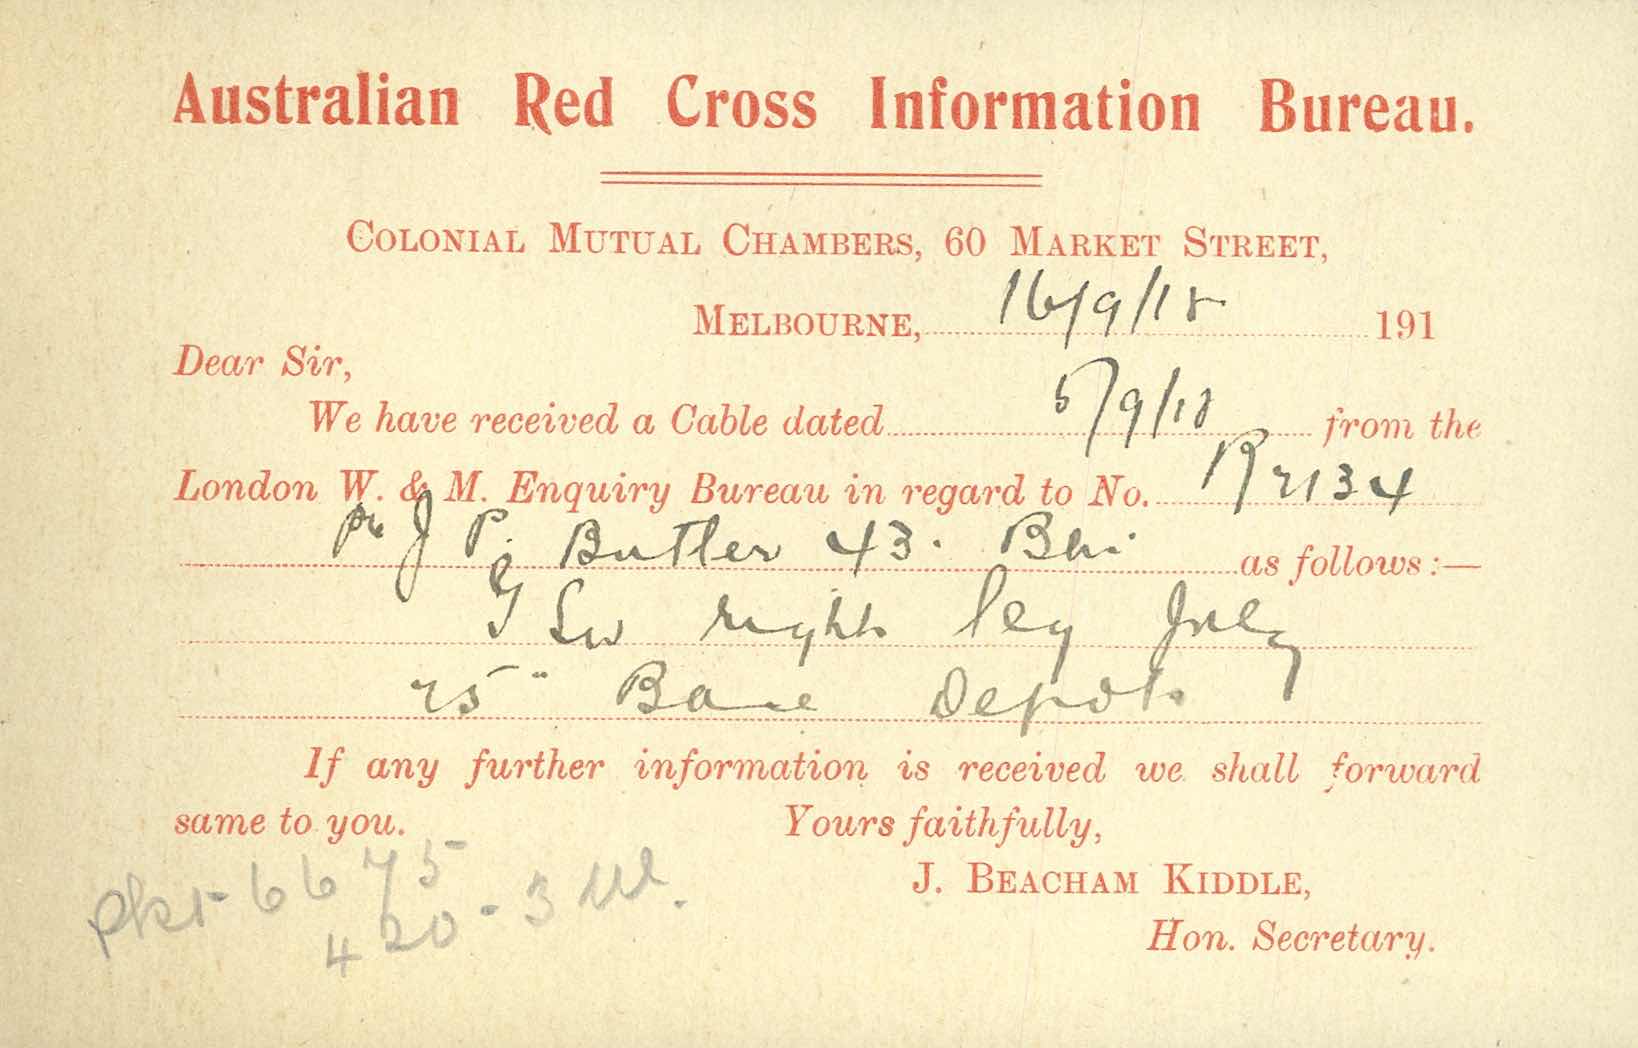 Australian Red Cross Information Bureau.
Colonial Mutual Chambers, 60 Market Street,
Melbourne, 16/9/18 191
Dear Sir,
We have received a Cable dated 5/9/18 from the
London W. & M. Enquiry Bureau in regard to No. R2134
Pte J P. Butler 43. Bn. as follows:—
G S W right leg July
25" Base Depot.
If any further information is received we shall forward
same to you. Yours faithfully,
J. Beacham Kiddle,
Hon. Secretary.
pkt-6675
420-3